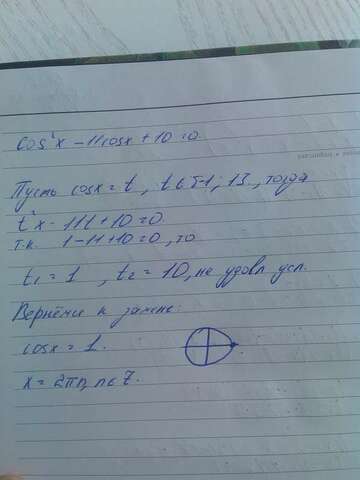 cos²x - 11cosx + 10 = 0.
Пусть cosx = t, t ∈ [-1; 1]., тогда
t²x - 11t + 10 = 0.
т.к. 1 - 11 + 10 = 0, то
t₁ = 1, t₂ = 10, не удовл. усл.
Вернёмся к замене:
cosx = 1.
x = 2πn, n ∈ Z.